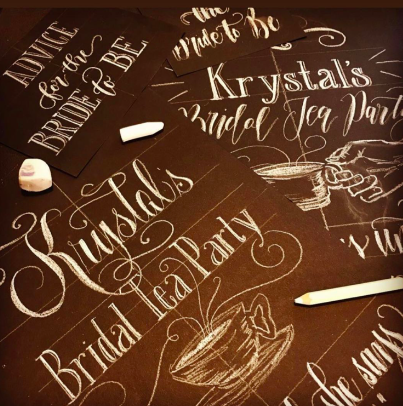 ADVICE
for the
BRIDE to BE
the
Bride to Be
Krystal's
Bridal Tea Party
Krystal's
Bridal Tea Party
she says